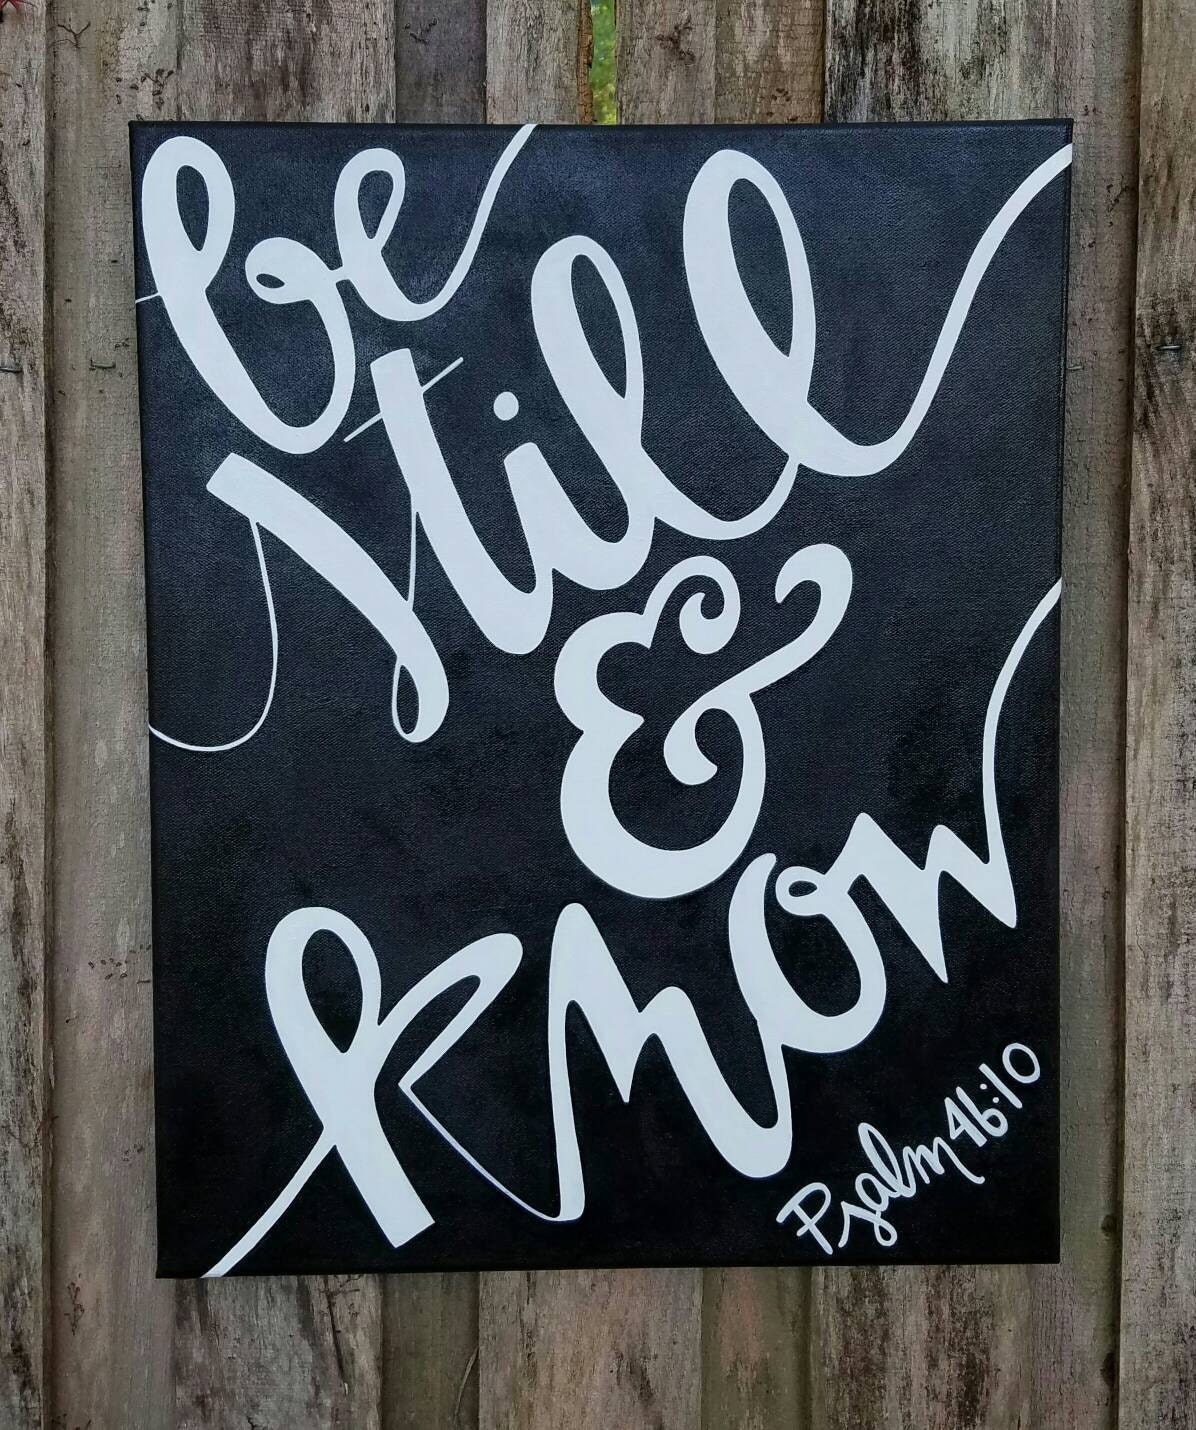 be
still
&
know
Psalm 46:10